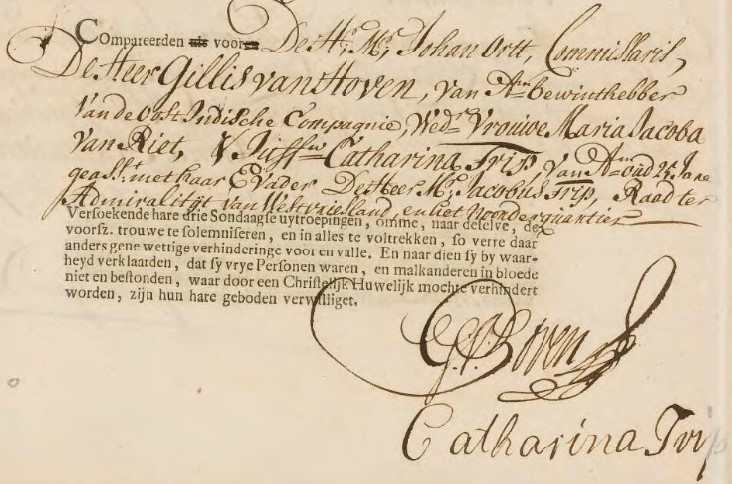 Compareerden als vooren De Hr. Mr. Johan Ortt, Commissaris,
De Heer Gillis van Hoven, van Am bewinthebber
van de Oost Indische Compagnie, Wedr Vrouwe Maria Jacoba
van Riet, & Juffw Catharina Trip, van Am oud 25 Jare
geasst. met haar E Vader De Heer Mr. Jacobus Trip, Raad ter
Admiraliteyt van Westvriesland, en het Noorder quartier
Versoekende hare drie Sondaagse uytroepingen, omme, naar deselve, de
voorsz. trouwe te solemniseren, en in alles te voltrekken, so verre daar
anders gene wettige verhinderinge voor en valle. En naar dien sy by waar-
heyd verklaarden, dat sy vrye Personen waren, en malkanderen in bloede
niet en bestonden, waar door een Christelijk Huwelijk mochte verhindert
worden, zijn hun hare geboden verwilliget.
G. V. Hoven
Catharina Trip